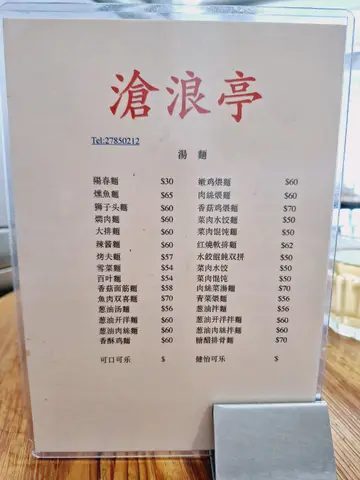 滄浪亭
Tel:27850212
湯 麵
陽春麵 $30 嫩鸡煨麵 $60
燻魚麵 $65 肉絲煨麵 $60
狮子头麵 $60 香菇鸡煨麵 $70
燜肉麵 $60 菜肉水饺麵 $50
大排麵 $60 菜肉餛饨麵 $50
辣醬麵 $60 红燒軟排麵 $62
烤夫麵 $57 水餃餛飩双拼 $50
雪菜麵 $54 菜肉水饺 $50
百叶麵 $54 菜肉馄饨 $50
香菇面筋麵 $58 肉絲菜湯麵 $70
魚肉双喜麵 $70 青菜煨麵 $56
葱油汤麵 $56 葱油拌麵 $56
葱油开洋麵 $60 葱油开洋拌麵 $60
葱油肉絲麵 $60 葱油肉絲拌麵 $60
香酥鸡麵 $60 糖醋排骨麵 $70
可口可乐 $ 健怡可乐 $